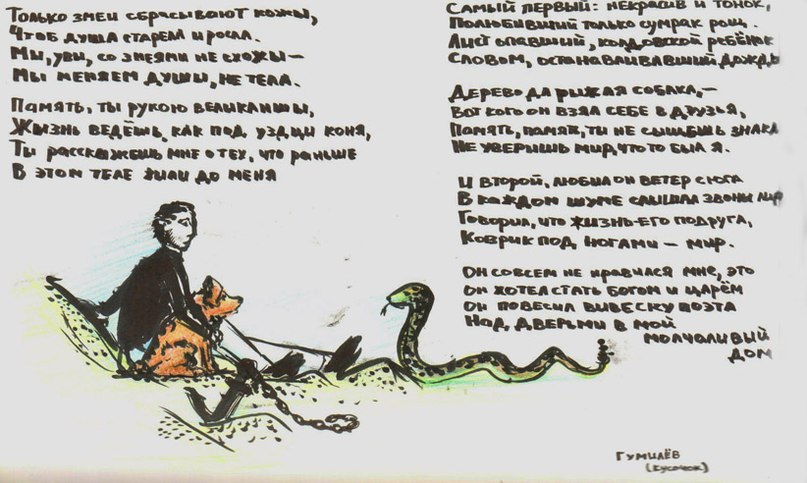 Только змеи сбрасывают кожы,
Чтоб душа старела и росла.
Мы, увы, со змеями не схожы –
Мы меняем душы, не тела.
Память, ты рукою великаншы,
Жизнь ведёшь, как под уздцы коня,
Ты расскажешь мне о тех, что раньше
В этом теле жили до меня
Самый первый: некрасив и тонок,
Полюбивший только сумрак рощ.
Лист опавший, колдовской ребёнок
Словом, останавливавший дождь
Дерево да рыжая собака, –
Вот кого он взял себе в друзья,
Память, память, ты не сыщешь знака
Не уверишь мир, что то был я.
И второй, любил он ветер с юга
В каждом шуме слышал звоны лир
Говорил, что жизнь – его подруга,
Коврик под ногами – мир.
Он совсем не нравился мне, это
Он хотел стать богом и царём
Он повесил вывеску поэта
Над дверьми в мой
молчаливый
дом
Гумилёв
(кусочек)